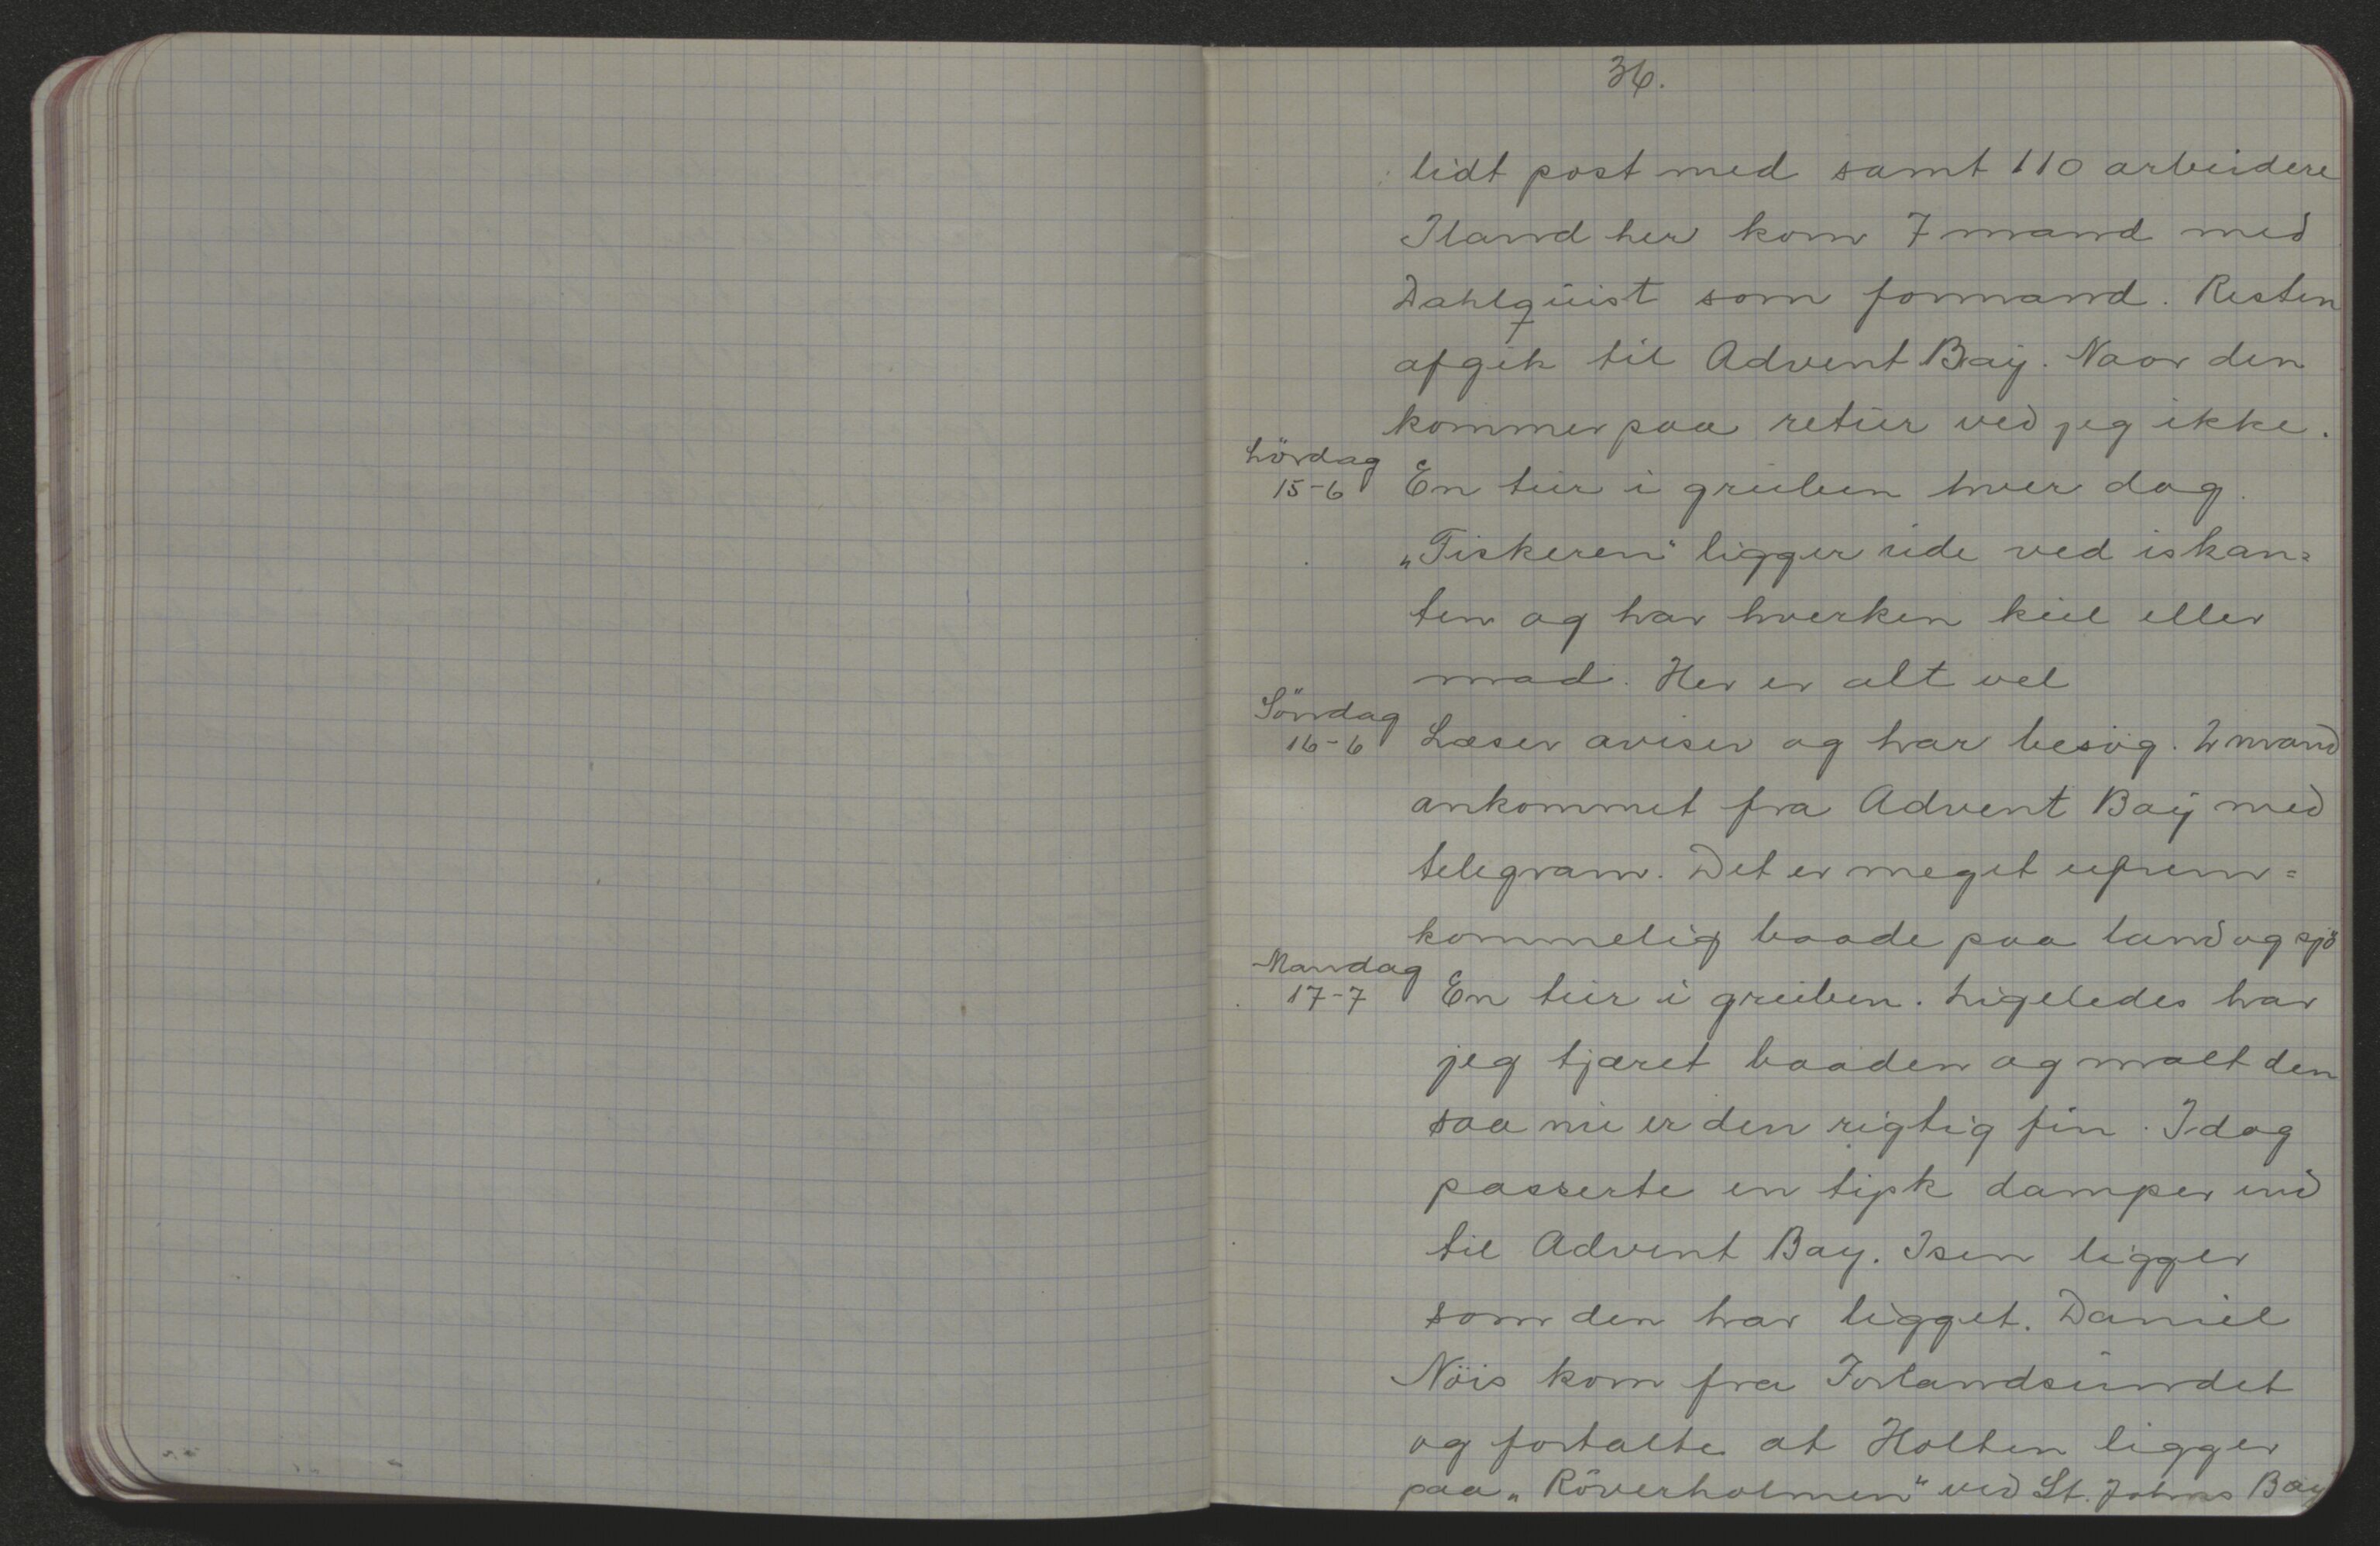 36.
lidt post med samt 110 arbeidere
Iland her kom 7 mand med
Dahlquist som formand. Resten
afgik til Advent Bay. Naar den
kommer paa retur ved jeg ikke.
Lördag
15-6 En tur i gruben hver dag.
„Fiskeren“ ligger ude ved iskan=
ten og har hverken kul eller
mad. Her er alt vel
Söndag
16-6 Læser aviser og har besög. 2 mand
ankommet fra Advent Bay med
telegram. Det er meget ufrem=
kommelig baade paa land og sjö
Mandag
17-7 En tur i gruben. Ligeledes har
jeg tjæret baaden og malt den
saa nu er den rigtig fin. Idag
passerte en tysk damper ind
til Advent Bay. Isen ligger
som den har ligget. Daniel
Nöis kom fra Forlandsundet
og fortalte at Holten ligger
paa „Röverholmen“ ved St. Johns Bay